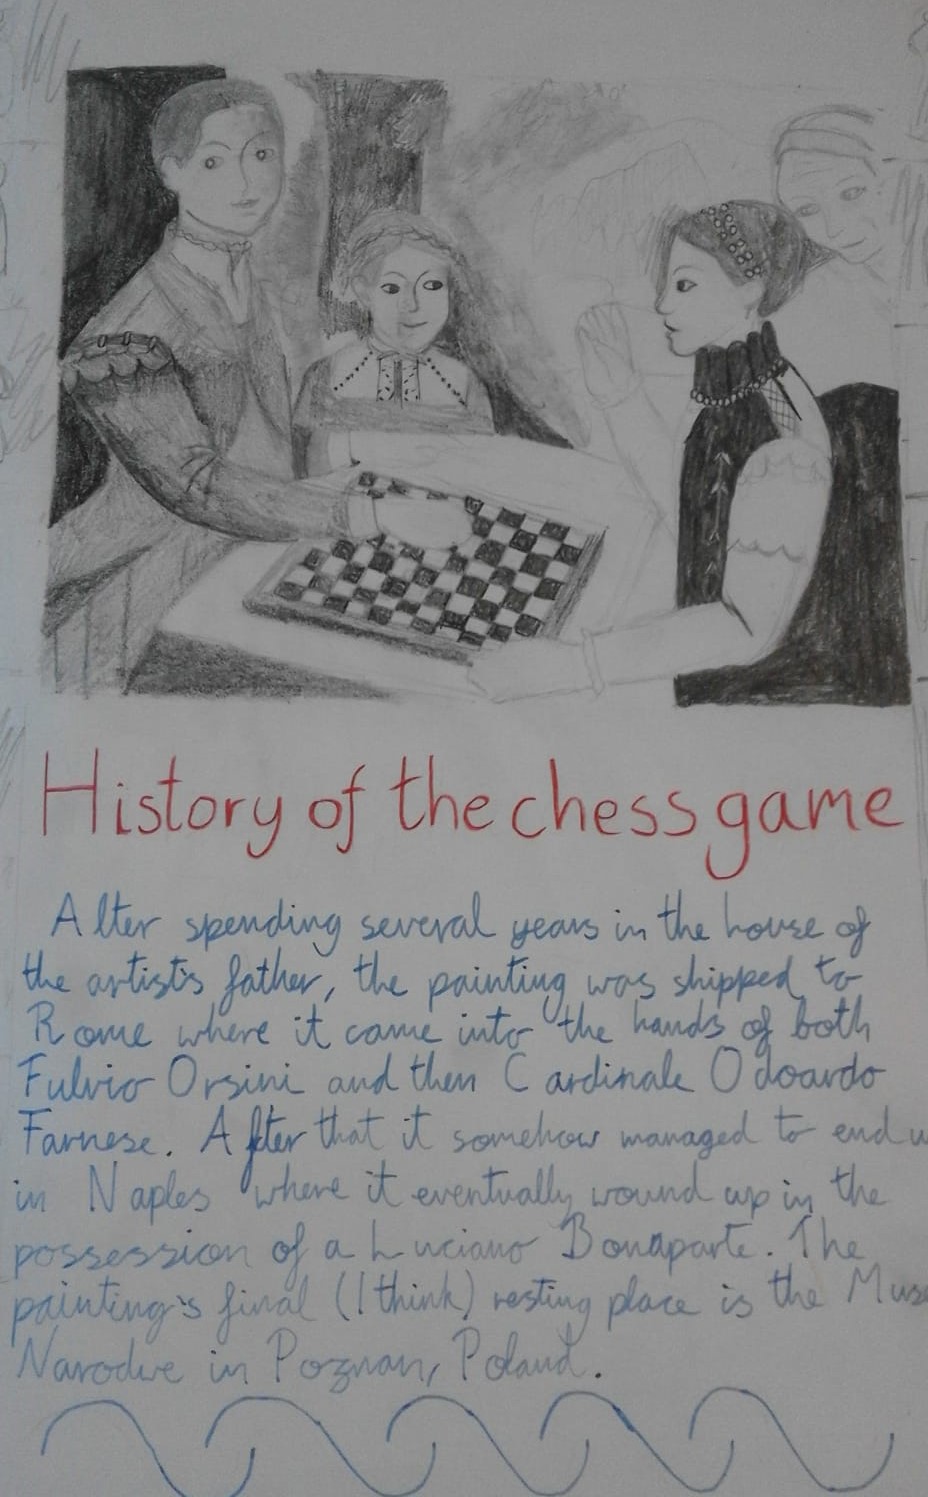 History of the chess game
Alter spending several years in the house of
the artist's father, the painting was shipped to
Rome where it came into the hands of both
Fulvio Orsini and then Cardinale Odoardo
Farnese. After that it somehow managed to end u
in Naples where it eventually wound up in the
possession of a Luciano Bonaparte. The
painting's final (I think) resting place is the Muse
Narodwe in Poznan, Poland.